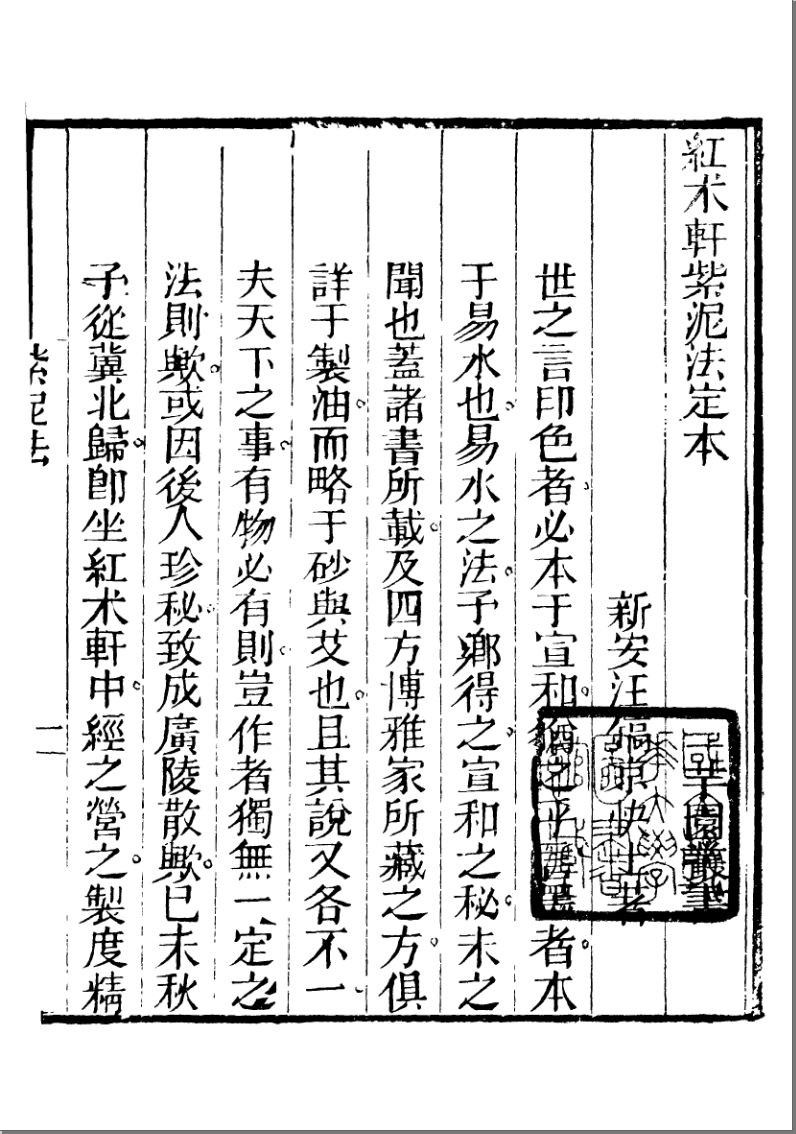 紅术軒紫泥法定本
新安汪鎬京快士著
世之言印色者必本于宣和猶之乎言墨者本
于易水也易水之法予鄉得之宣和之秘未之
聞也蓋諸書所載及四方博雅家所藏之方俱
詳于製油而略于砂與艾也且其說又各不一
夫天下之事有物必有則豈作者獨無一定之
法則歟或因後人珍秘致成廣陵散歟已未秋
予從冀北歸即坐紅术軒中經之營之製度精
紫泥法
一